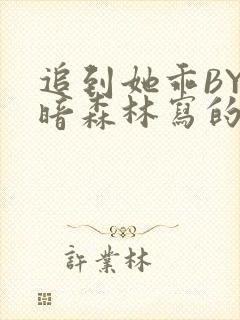 追到她乖BY
暗森林寫的
許業林